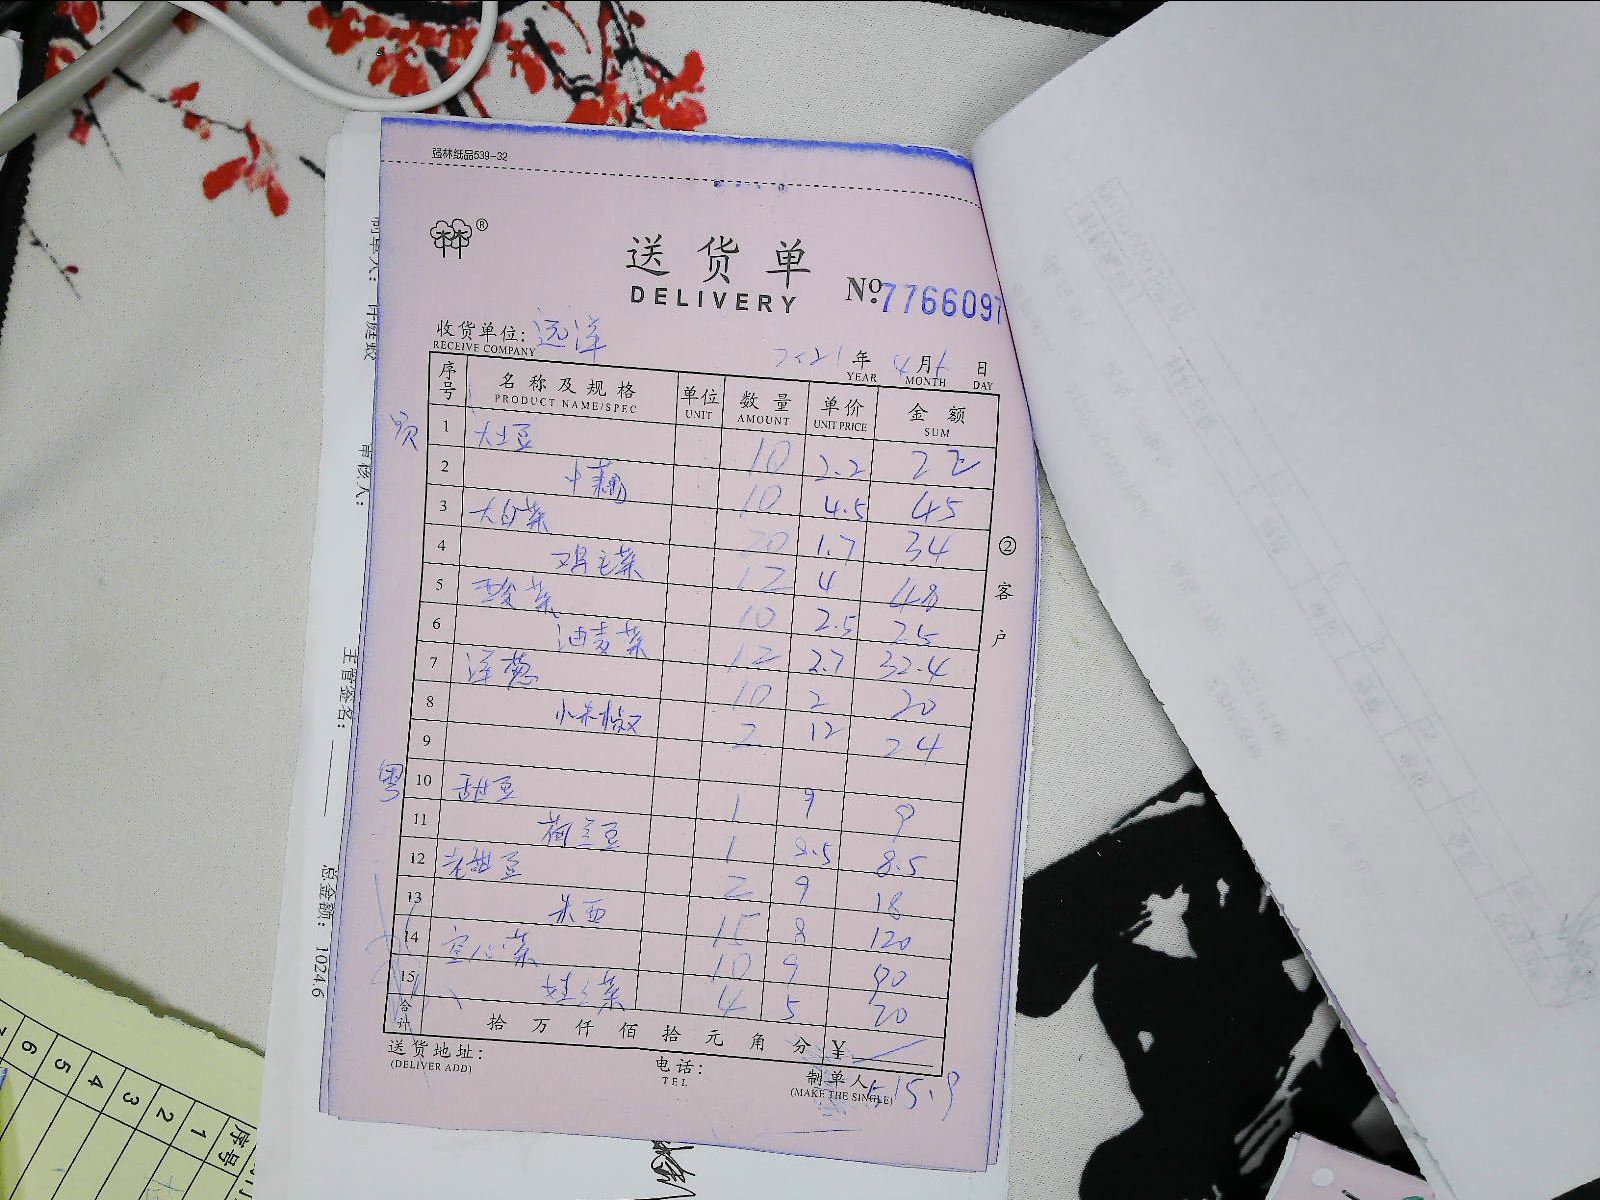 强林纸品539-32
林林®
送货单
DELIVERY
No.7766097
收货单位: 远洋
RECEIVE COMPANY
2021年4月6日
YEAR MONTH DAY
序号 名称及规格 单位 数量 单价 金额
PRODUCT NAME/SPEC UNIT AMOUNT UNIT PRICE SUM
1 大土豆 10 2.2 22
2 中藕 10 4.5 45
3 大白菜 20 1.7 34
4 鸡毛菜 12 4 48
5 酸菜 10 2.5 25
6 油麦菜 12 2.7 32.4
7 洋葱 10 2 20
8 小米椒 2 12 24
9
粤
10 甜豆 1 9 9
11 荷兰豆 1 8.5 8.5
12 老甜豆 2 9 18
13 朱西 15 8 120
14 空心菜 10 9 90
15 娃娃菜 4 5 20
合计 拾万仟佰拾元角分 ¥
送货地址:
(DELIVER ADD)
电话:
TEL
制单人
(MAKE THE SINGLE)
515.9
②客户
审核人:
主管签名:
总金额: 1024.6
序号
1
2
3
4
5
6